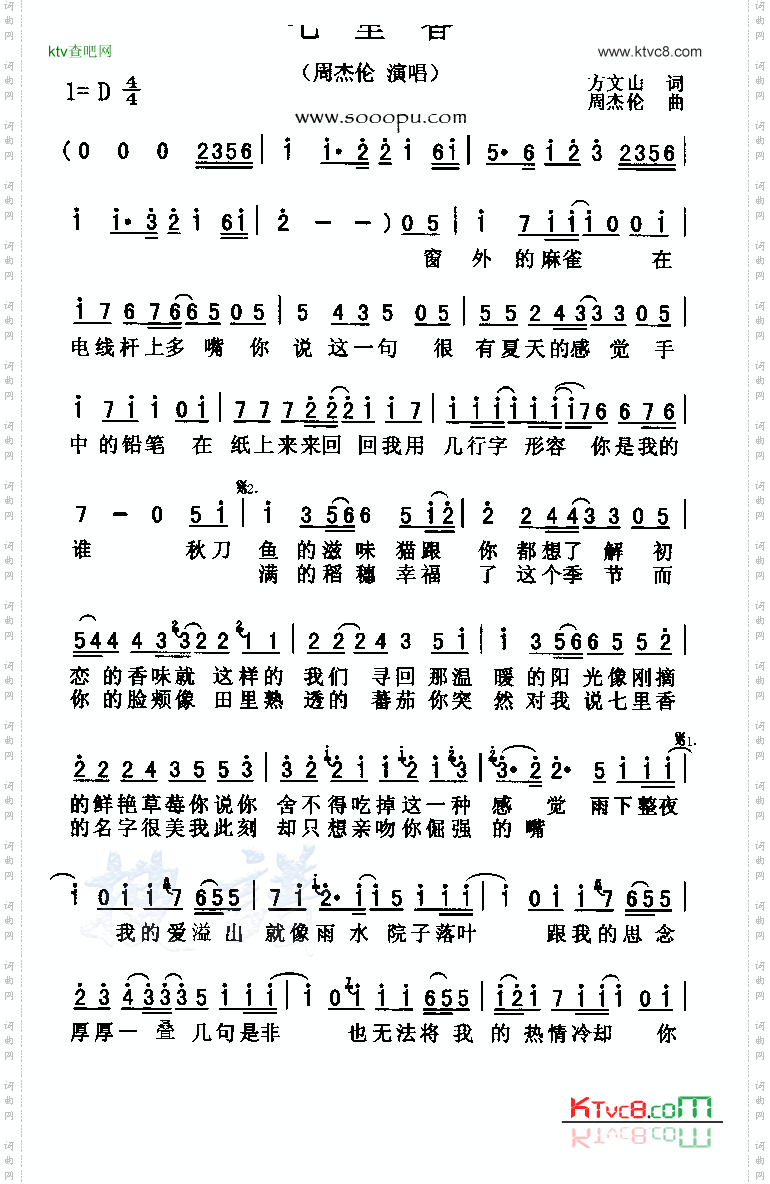 七里香
ktv查吧网
www.ktvc8.com
（周杰伦 演唱）
1=D 4/4
方文山 词
周杰伦 曲
www.sooopu.com
(0 0 0 2356 | i i· 2 2 i 6 i | 5· 6 i 2 3 2356 |
i i· 3 2 i 6 i | 2 - - ) 0 5 | i 7 i i i 0 0 i |
窗 外 的麻雀 在
i 7 6 7 6 6 6 5 0 5 | 5 4 3 5 0 5 | 5 5 2 4 3 3 3 0 5 |
电线杆上多 嘴 你 说 这一句 很 有夏天的感 觉 手
i 7 i i 0 i | 7 7 7 2 2 2 i i 7 | i i i i i i i 7 6 6 7 6 |
中的铅笔 在 纸上来来回 回我用 几行字 形容 你是我的
7 - 0 5 i | i 3 5 6 6 6 5 i 2 | 2 2 4 4 3 3 0 5 |
𝄋2.
谁 秋刀 鱼 的滋 味猫跟 你 都想了 解初
满 的稻 穗 幸福 了 这个季 节而
5 4 4 4 3 3 2 2 2 1 1 | 2 2 2 4 3 5 i | i 3 5 6 6 6 5 5 2 |
恋 的香味就 这样的 我们 寻回那温 暖的阳 光像刚摘
你 的脸颊像 田里熟 透的 蕃茄你突 然对我 说七里香
𝄋1.
2 2 2 4 3 5 5 3 | 3 2 2 1 1 2 1 3 | 3· 2 2· 5 i i i |
的鲜艳草莓你说你 舍不得吃掉这一种 感 觉 雨下整夜
的名字很美我此刻 却只想亲吻你倔强 的 嘴
i 0 i i 7 6 5 5 | 7 i 2· i i 5 i i i | i 0 i i 7 6 5 5 |
我的爱溢山 就像雨 水 院子落叶 跟我的思念
2 3 4 3 3 3 5 i i i | i 0 i i i 6 5 5 | i 2 i 7 i i i 0 i |
厚厚一 叠 几句是非 也无法将 我 的 热情冷却 你
KTvc8.com
词曲网